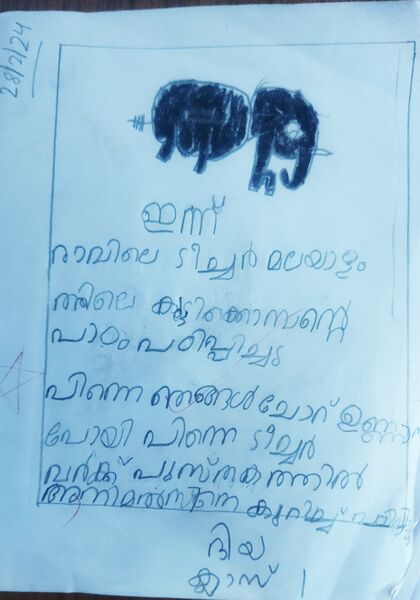 28/2/24
ഇന്ന്
രാവിലെ ടീച്ചർ മലയാളം
ത്തിലെ കുട്ടിക്കൊമ്പന്റെ
പാഠം പഠിപ്പിച്ചു
പിന്നെ ഞങ്ങൾ ചോറ് ഉണ്ണാൻ
പോയി പിന്നെ ടീച്ചർ
വർക്ക് പുസ്തകത്തിൽ
അനിമൽസിനെ കുറിച്ച്
ദിയ
ക്ലാസ് 1